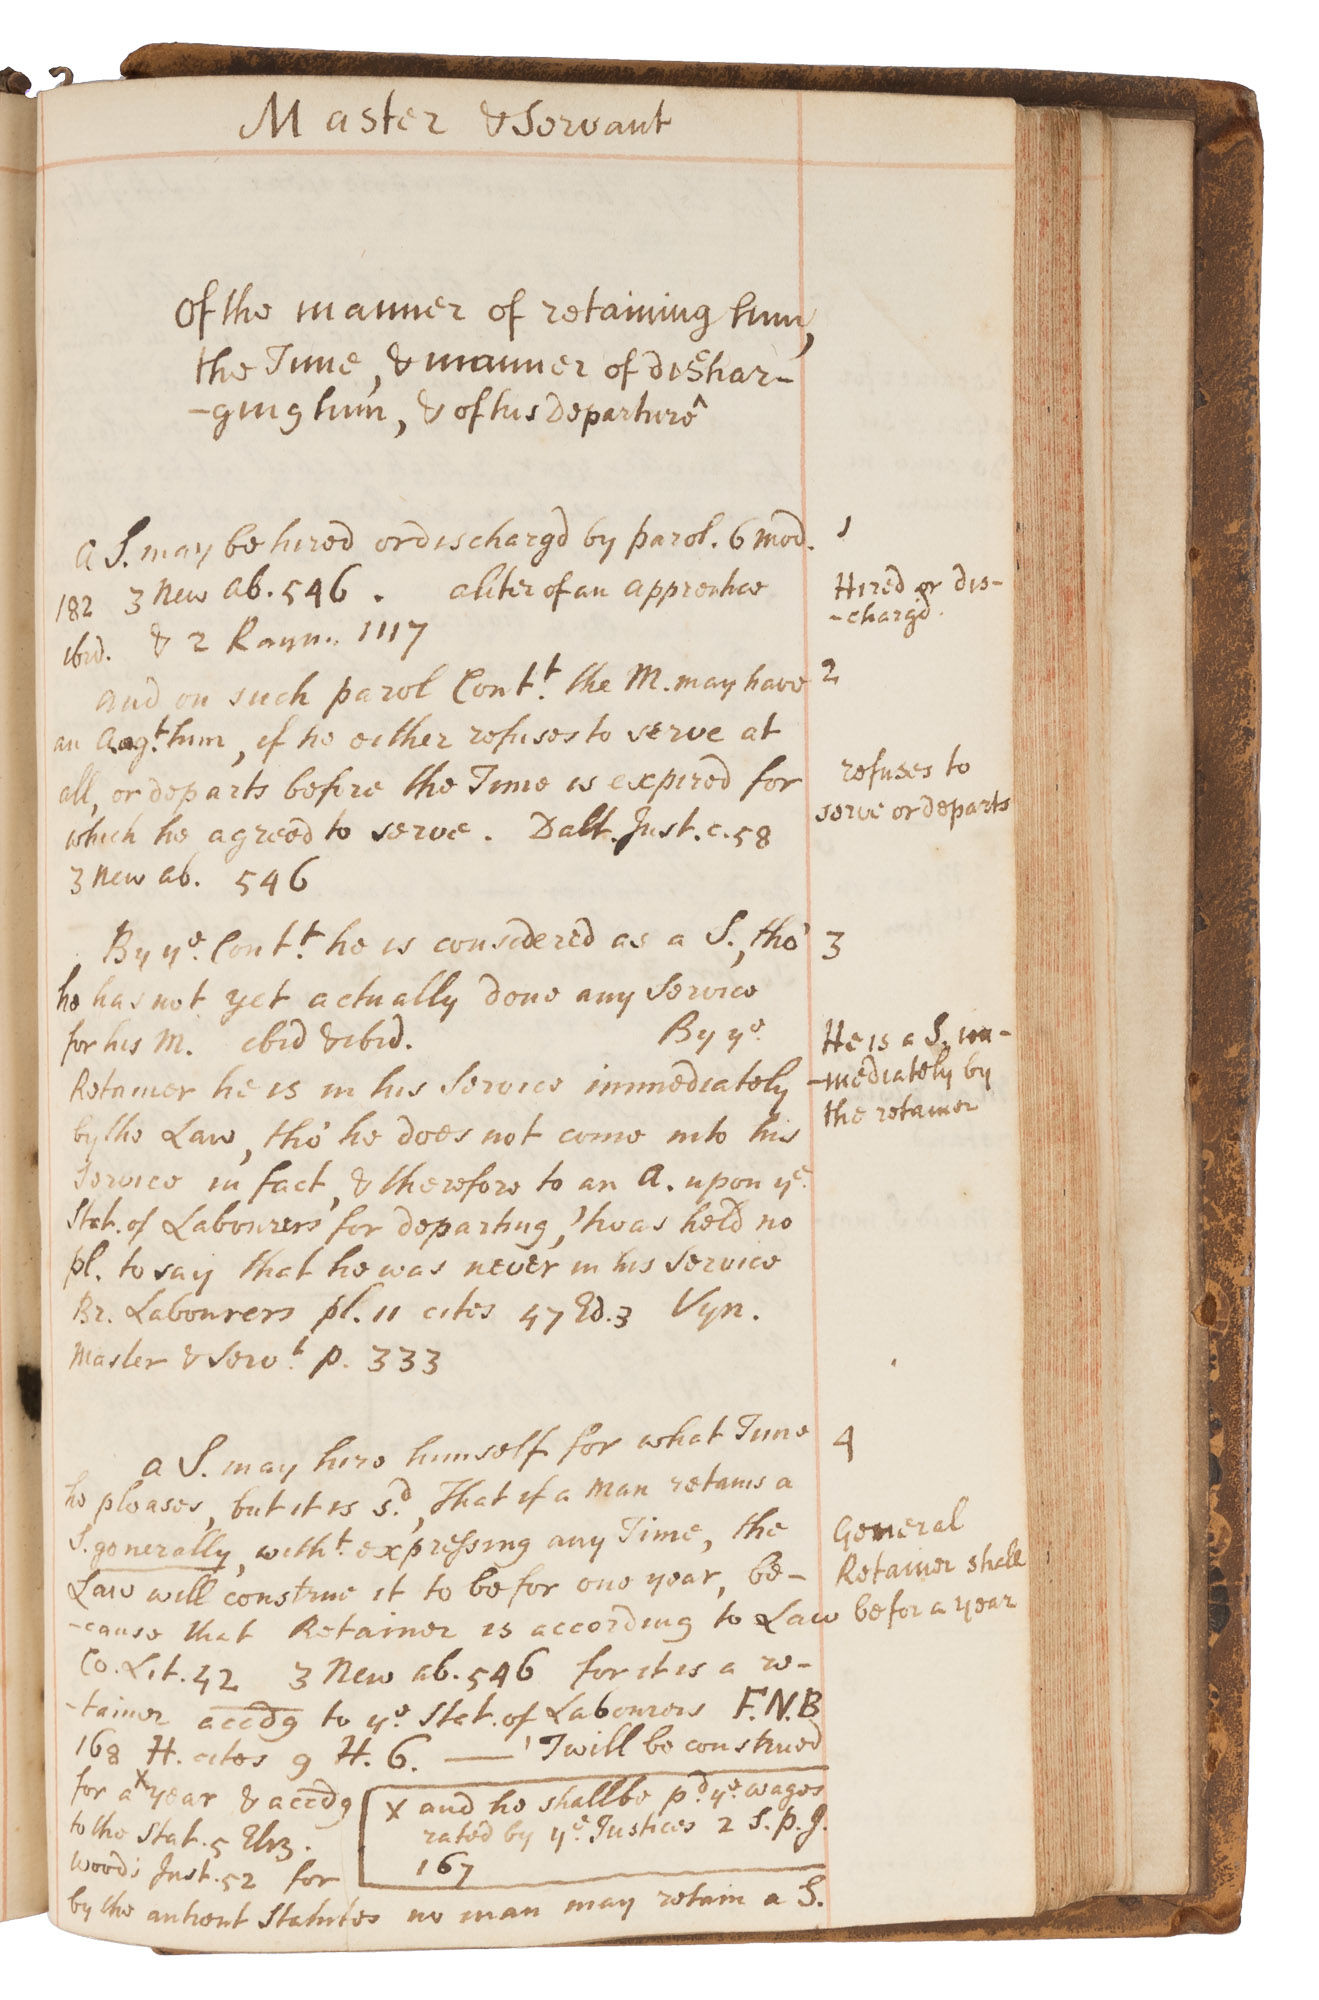 Master & Servant
Of the manner of retaining him,
the Time, & manner of dischar-
-ging him, & of his departure
a S. may be hired or dischargd by parol. 6 Mod.
1
182 3 New ab. 546. aliter of an apprentice
Hired or dis-
-chargd.
ibid. & 2 Raym. 1117
and on such parol Cont.t the M. may have
2
an A. ag.t him, if he either refuses to serve at
all, or departs before the Time is expired for
refuses to
serve or departs
which he agreed to serve. Dalt. Just. c. 58
3 New ab. 546
By ye. Cont.t he is considered as a S., tho'
3
he has not yet actually done any Service
for his M. ibid & ibid. By ye.
He is a S. im-
Retainer he is in his Service immediately
-mediately by
by the Law, tho' he does not come into his
the retainer
Service in fact, & therefore to an A. upon ye.
Stat. of Labourers for departing, 'twas held no
pl. to say that he was never in his Service
Br. Labourers pl. 11 cites 47 Ed. 3 Vyn.
Master & Serv.t p. 333
a S. may hire himself for what Time
4
he pleases, but it is s.d, That if a Man retains a
S. generally, with.t expressing any Time, the
General
Law will construe it to be for one year, be-
Retainer shall
-cause that Retainer is according to Law
be for a year
Co. Lit. 42 3 New ab. 546 for it is a re-
-tainer accdg to ye. Stat. of Labourers F.N.B
168 H. cites 9 H. 6. — 'Twill be construed
for a x year & accdg
to the Stat. 5 Eliz.
Woods Inst. 52 for
x and he shall be p.d ye. wages
rated by ye. Justices 2 S. p. J.
167
by the antient Statutes no man may retain a S.